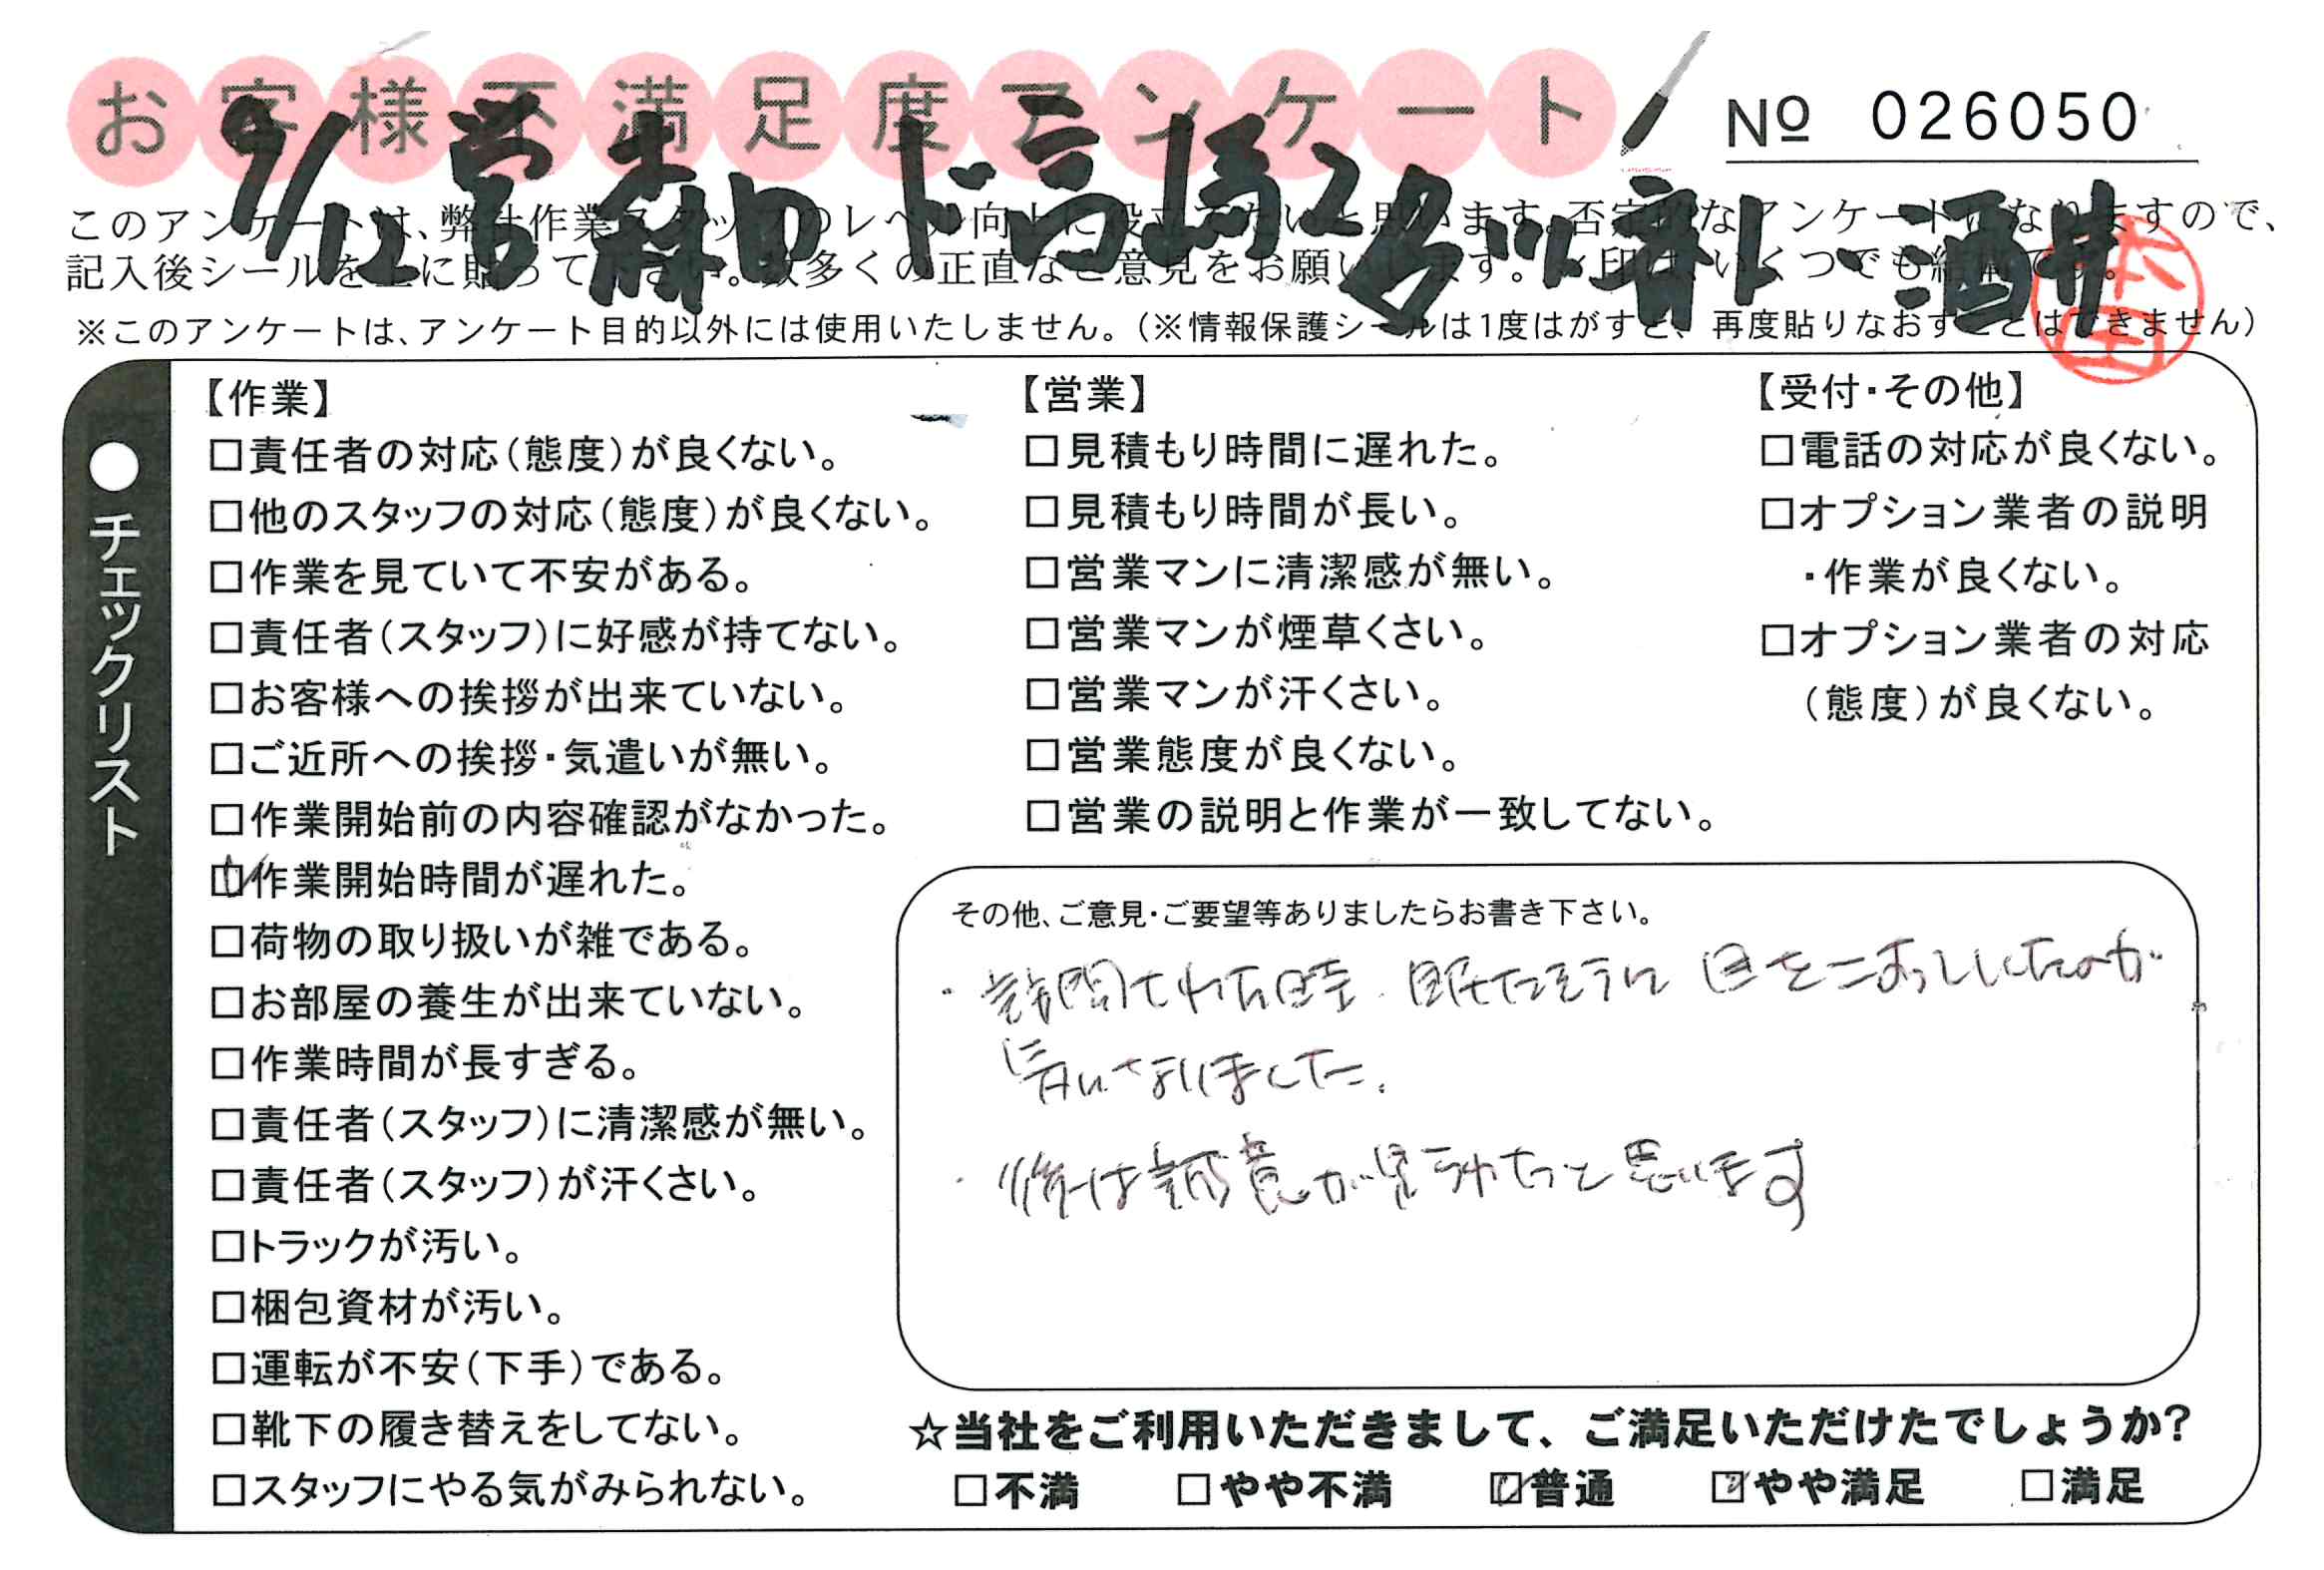 お客様不満足度アンケート
№ 026050
9/12 営 森田 ド高橋 2名 酒井
本田
このアンケートは、弊社作業スタッフのレベル向上に役立てたいと思います。否定的なアンケートになりますので、
記入後シールを上に貼って下さい。数多くの正直なご意見をお願いします。✓印は、いくつでも結構です。
※このアンケートは、アンケート目的以外には使用いたしません。（※情報保護シールは1度はがすと、再度貼りなおすことはできません）
●チェックリスト
【作業】
□責任者の対応（態度）が良くない。
□他のスタッフの対応（態度）が良くない。
□作業を見ていて不安がある。
□責任者（スタッフ）に好感が持てない。
□お客様への挨拶が出来ていない。
□ご近所への挨拶・気遣いが無い。
□作業開始前の内容確認がなかった。
☑作業開始時間が遅れた。
□荷物の取り扱いが雑である。
□お部屋の養生が出来ていない。
□作業時間が長すぎる。
□責任者（スタッフ）に清潔感が無い。
□責任者（スタッフ）が汗くさい。
□トラックが汚い。
□梱包資材が汚い。
□運転が不安（下手）である。
□靴下の履き替えをしてない。
□スタッフにやる気がみられない。
【営業】
□見積もり時間に遅れた。
□見積もり時間が長い。
□営業マンに清潔感が無い。
□営業マンが煙草くさい。
□営業マンが汗くさい。
□営業態度が良くない。
□営業の説明と作業が一致してない。
【受付・その他】
□電話の対応が良くない。
□オプション業者の説明
・作業が良くない。
□オプション業者の対応
（態度）が良くない。
その他、ご意見・ご要望等ありましたらお書き下さい。
・訪問された時、眠たそうに目をこすっていたのが
気になりました。
・後は誠意が見られたと思います
☆当社をご利用いただきまして、ご満足いただけたでしょうか？
□不満 □やや不満 ☑普通 ☑やや満足 □満足